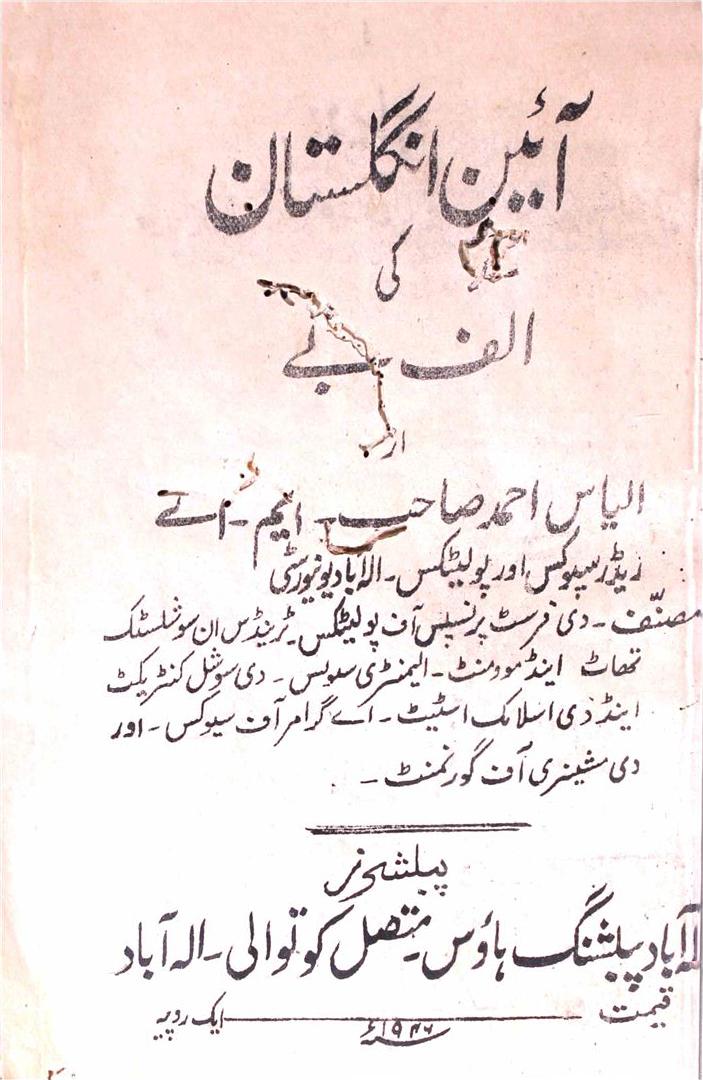 آئین انگلستان
کی
الف بے
از
الیاس احمد صاحب۔ ایم۔ اے
ریڈر سیوکس اور پولیٹکس۔ الہ آباد یونیورسٹی
مصنّف۔ دی فرسٹ پرنسپلس آف پولیٹکس۔ ٹرینڈس ان سوشلسٹک
تھاٹ اینڈ موومنٹ۔ الیمنٹری سوِکس۔ دی سوشل کنٹریکٹ
اینڈ دی اسلامک اسٹیٹ۔ اے گرامر آف سیوکس۔ اور
دی مشینری آف گورنمنٹ۔
پبلشرز
الہ آباد پبلشنگ ہاؤس۔ متصل کوتوالی۔ الہ آباد
قیمت ایک روپیہ
۱۹۴۶ء